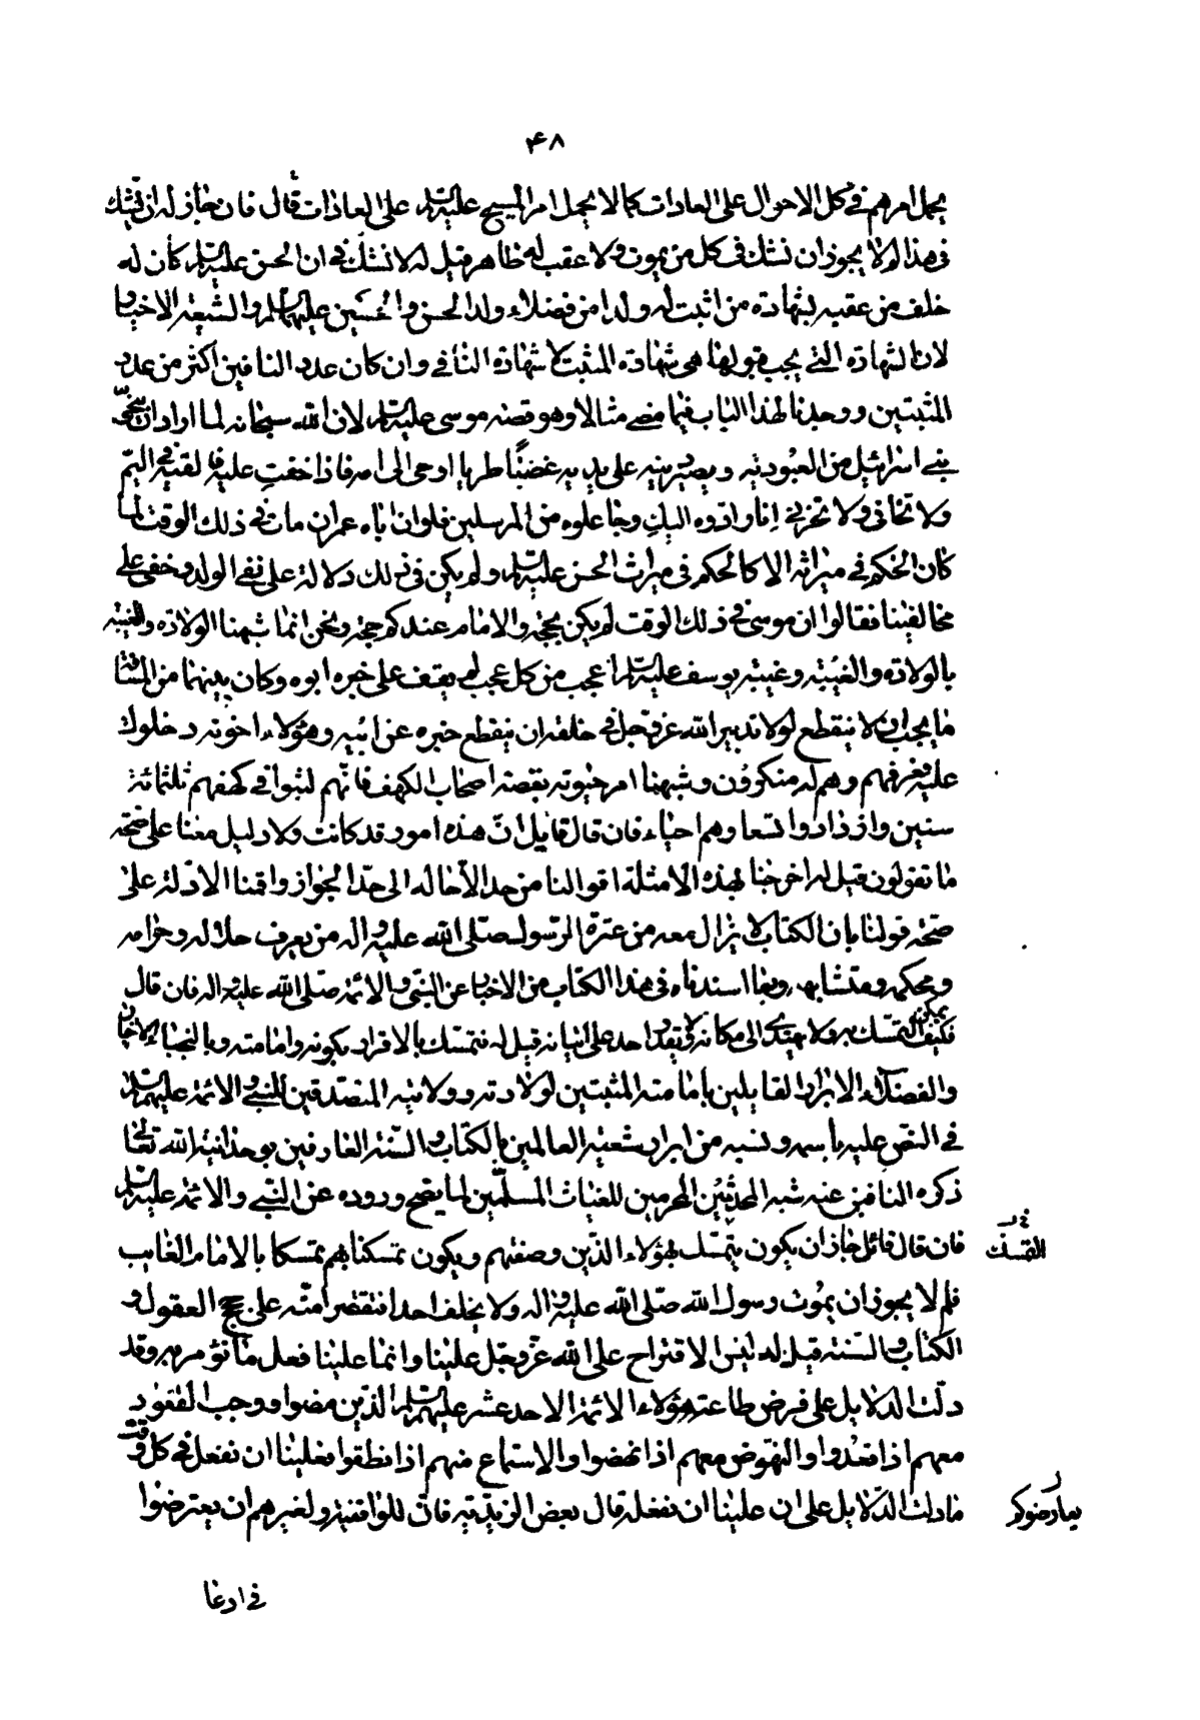 ۴۸
يحمل امرهم في كل الاحوال على العادات كما لا يحمل امر المسيح عليه السلم على العادات قال فان جاز له ان يشك
في هذا لم لا يجوز ان نشك في كل من يموت ولا عقب له ظاهر قيل له لا نشك في ان الحسن عليه السلم كان له
خلف من عقبه بشهادة من اثبت له ولدا من فضلاء ولد الحسن والحسين عليهما السلم والشيعة الاخيار
لان الشهادة التي يجب قبولها هي شهادة المثبت لا شهادة النافي وان كان عدد النافين اكثر من عدد
المثبتين ووجدنا لهذا الباب فيما مضى مثالا وهو قصة موسى عليه السلم لان الله سبحانه لما اراد ان ينجي
بني اسرائيل من العبودية ويصير دينه على يديه غضا طريا اوحى الى امه فاذا خفت عليه فالقيه في اليم
ولا تخافي ولا تحزني انا رادوه اليك وجاعلوه من المرسلين فلو ان اباه عمران مات في ذلك الوقت لما
كان الحكم في ميراثه الا كالحكم في ميراث الحسن عليه السلم ولم يكن في ذلك دلالة على نفي الولد وخفي على
مخالفينا فقالوا ان موسى في ذلك الوقت لم يكن بحجة والامام عندكم حجة ونحن انما شبهنا الولادة والغيبة
بالولادة والغيبة وغيبة يوسف عليه السلم اعجب من كل عجب لم يقف على خبره ابوه وكان بينهما من المسافة
ما يجب ان لا ينقطع لولا تدبير الله عز وجل في خلقه ان ينقطع خبره عن ابيه وهؤلاء اخوته دخلوا
عليه فعرفهم وهم له منكرون وشبهنا امر حيوته بقصة اصحاب الكهف فانهم لبثوا في كهفهم ثلثمائة
سنين وازدادوا تسعا وهم احياء فان قال قايل ان هذه امور قد كانت ولا دليل معنا على صحة
ما تقولون قيل له اخرجنا بهذه الامثلة اقوالنا من حد الاحالة الى حد الجواز واقمنا الادلة على
صحة قولنا بان الكتاب لا يزال معه من عترة الرسول صلى الله عليه واله من يعرف حلاله وحرامه
ومحكمه ومتشابهه وبما اسندناه في هذا الكتاب من الاخبار عن النبي والائمة صلى الله عليه واله فان قال
فكيف التمسك به ولا نهتدي الى مكانه ولا يقدر احد على اتيانه قيل له نتمسك بالاقرار بكونه وامامته وبالنجباء الاخيار
والفضلاء الابرار القايلين بامامته المثبتين لولادته وولايته المصدقين للنبي والائمة عليهم السلم
في النص عليه باسمه ونسبه من ابرار شيعته العالمين بالكتاب والسنة العارفين بوحدانية الله تعالى
ذكره النافين عنه شبه المحدثين المحرمين للقياس المسلمين لما يصح وروده عن النبي والائمة عليهم السلم
فان قال قائل جاز ان يكون يتمسك بهؤلاء الذين وصفتهم ويكون تمسكنا بهم تمسكا بالامام الغايب
التمسك
فلم لا يجوز ان يموت رسول الله صلى الله عليه واله ولا يخلف احدا فتقتصر امته على حجج العقول و
الكتاب والسنة قيل له ليس الاقتراح على الله عز وجل علينا وانما علينا فعل ما نؤمر به وقد
دلت الدلايل على فرض طاعة هؤلاء الائمة الاحد عشر عليهم السلم الذين مضوا ووجب القعود
معهم اذا قعدوا والنهوض معهم اذا نهضوا والاستماع منهم اذا نطقوا فعلينا ان نفعل في كل وقت
ما دلت الدلايل على ان علينا ان نفعله قال بعض الزيدية فان للواقفية ولغيرهم ان يعترضوا
يعارضوكم
في ادعا